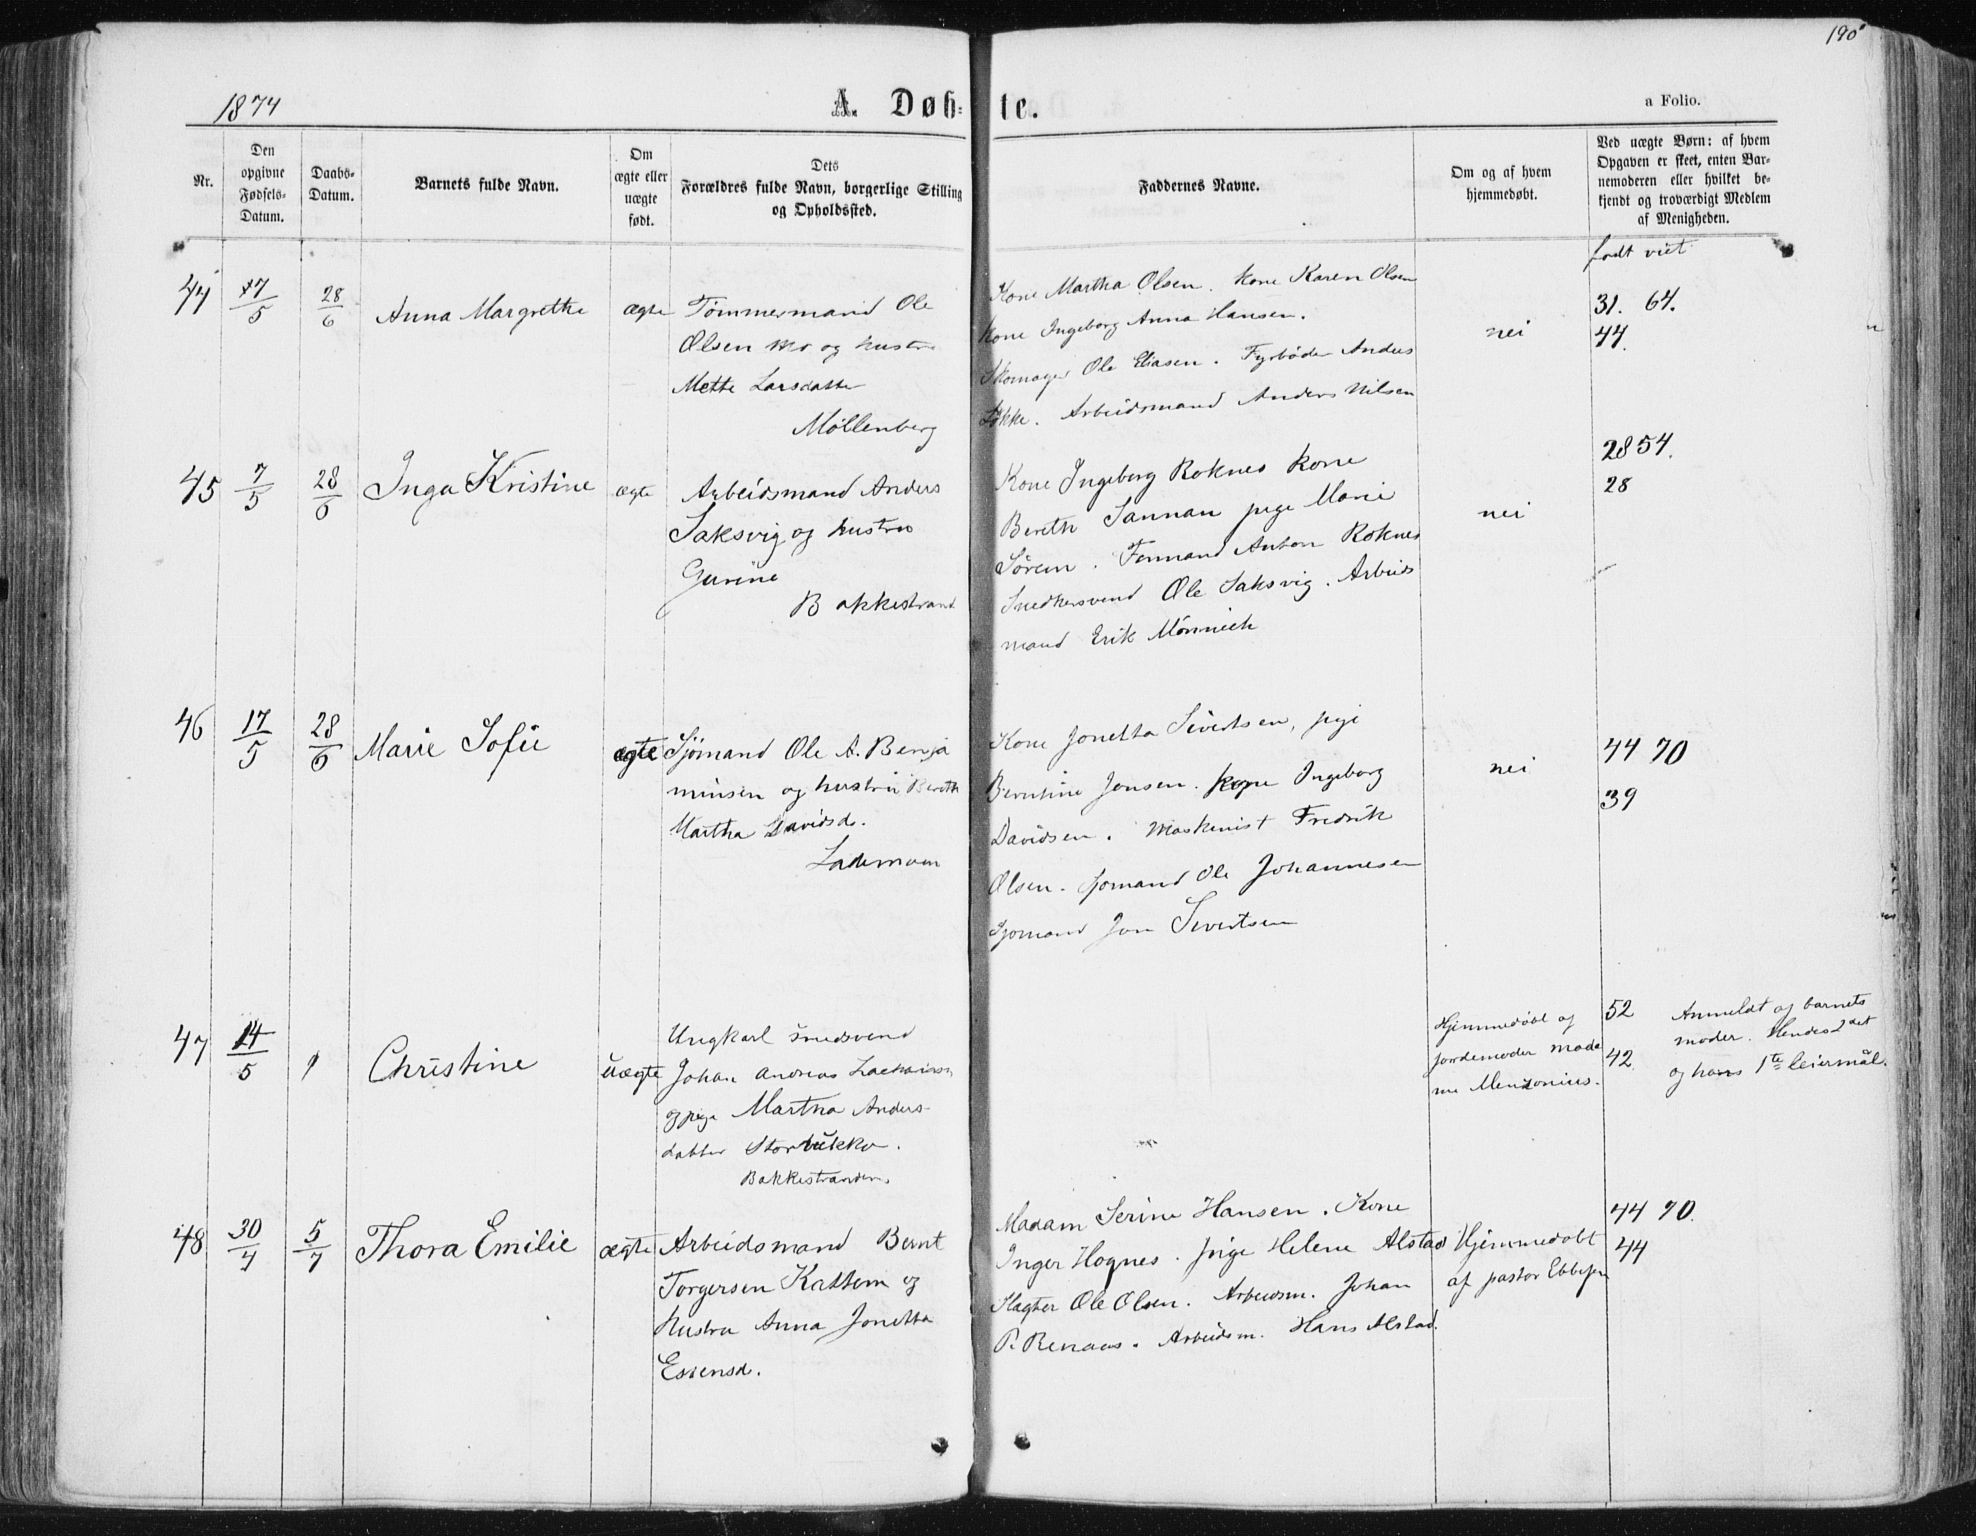 190
1874
A. Døb-
te.
a Folio.
Nr.
Den
opgivne
Fødsels-
Datum.
Daabs-
Datum.
Barnets fulde Navn.
Om
ægte eller
uægte
født.
Dets
Forældres fulde Navn, borgerlige Stilling
og Opholdssted.
Faddernes Navne.
Om og af hvem
hjemmedøbt.
Ved uægte Børn: af hvem
Opgaven er skeet, enten Bar-
nemoderen eller hvilket be-
kjendt og troværdigt Medlem
af Menigheden.
født viet
44
17/5
28/6
Anna Margrethe
ægte
Tømmermand Ole
Olsen Mo og hustru
Mette Larsdatter
Møllenberg
Kone Martha Olsen. Kone Karen Olsen
Kone Ingeborg Anna Hansen.
Skomager Ole Eliasen. Fyrbøder Anders
Løkke. Arbeidsmand Anders Nilsen
nei
31. 64.
44.
45
7/5
28/6
Inga Kristine
ægte
Arbeidsmand Anders
Saksvig og hustru
Gurine
Bakkestrand
Kone Ingeborg Roknes kone
Bereth Sannan pige Marie
Sørem. Formand Anton Roknes
Snedkersvend Ole Saksvig. Arbeids
mand Erik Mönnich
nei
28 54.
28
46
17/5
28/6
Marie Sofie
ægte
Sjømand Ole A. Benja
minsen og hustru Bereth
Martha Davidsd.
Lademoen
Kone Jonetta Sivertsen, pige
Berntine Jonsen. kone Ingeborg
Davidsen. Maskinist Fredrik
Olsen. Sjømand Ole Johannesen
Sjomand Jon Sivertsen
nei
44 70
39
47
14/5
Christine
uægte
Ungkarl Snedsvend
Johan Andreas Zachariasen
og pige Martha Anders-
datter Storbukko.
Bakkestranden.
Hjemmedøbt af
jordemoder mada
me Menzonius.
52
42
Anmeldt af barnets
moder. Hendes 2det
og hans 1te leiermål.
48
30/4
5/7
Thora Emilie
ægte
Arbeidsmand Bernt
Torgersen Kattem og
hustru Anna Jonetta
Estensd.
Madam Serine Hansen. Kone
Inger Hognes. pige Helene Alstad
Slagter Ole Olsen. Arbeidsm. Johan
P. Renaas. Arbeidsm. Hans Alstad.
Hjemmedøbt
af pastor Ebbesen
44 70.
44